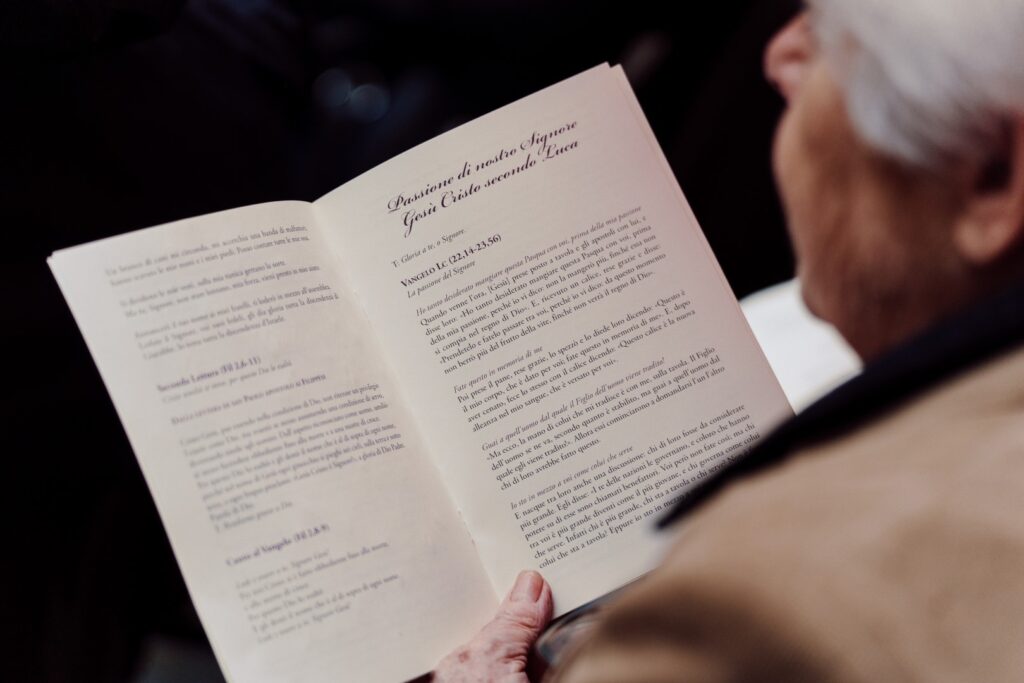 Un branco di cani mi circonda, mi accerchia una banda di malfattori;
hanno scavato le mie mani e i miei piedi. Posso contare tutte le mie ossa.
Si dividono le mie vesti, sulla mia tunica gettano la sorte.
Ma tu, Signore, non stare lontano, mia forza, vieni presto in mio aiuto.
Annuncerò il tuo nome ai miei fratelli, ti loderò in mezzo all'assemblea.
Lodate il Signore, voi suoi fedeli, gli dia gloria tutta la discendenza di
Giacobbe, lo tema tutta la discendenza d'Israele.
Seconda Lettura (Fil 2,6-11)
Dalla lettera di san Paolo apostolo ai Filippesi
Parola di Dio.
Canto al Vangelo (Fil 2,8-9)
Lode e onore a te, Signore Gesù!
Per noi Cristo si è fatto obbediente fino alla morte
e alla morte di croce.
Per questo Dio lo esaltò
e gli donò il nome che è al di sopra di ogni nome.
Lode e onore a te, Signore Gesù!
Passione di nostro Signore
Gesù Cristo secondo Luca
T: Gloria a te, o Signore.
Vangelo Lc (22,14-23,56)
La passione del Signore
Ho tanto desiderato mangiare questa Pasqua con voi, prima della mia passione
Quando venne l'ora, [Gesù] prese posto a tavola e gli apostoli con lui, e
disse loro: «Ho tanto desiderato mangiare questa Pasqua con voi, prima
della mia passione, perché io vi dico: non la mangerò più, finché essa non
si compia nel regno di Dio». E, ricevuto un calice, rese grazie e disse:
«Prendetelo e fatelo passare tra voi, perché io vi dico: da questo momento
non berrò più del frutto della vite, finché non verrà il regno di Dio».
Fate questo in memoria di me
Poi prese il pane, rese grazie, lo spezzò e lo diede loro dicendo: «Questo è
il mio corpo, che è dato per voi; fate questo in memoria di me». E, dopo
aver cenato, fece lo stesso con il calice dicendo: «Questo calice è la nuova
alleanza nel mio sangue, che è versato per voi».
Guai a quell'uomo dal quale il Figlio dell'uomo viene tradito!
«Ma ecco, la mano di colui che mi tradisce è con me, sulla tavola. Il Figlio
dell'uomo se ne va, secondo quanto è stabilito, ma guai a quell'uomo dal
quale egli viene tradito!». Allora essi cominciarono a domandarsi l'un l'altro
chi di loro avrebbe fatto questo.
Io sto in mezzo a voi come colui che serve
E nacque tra loro anche una discussione: chi di loro fosse da considerare
più grande. Egli disse: «I re delle nazioni le governano, e coloro che hanno
potere su di esse sono chiamati benefattori. Voi però non fate così; ma chi
tra voi è più grande diventi come il più giovane, e chi governa come colui
che serve. Infatti chi è più grande, chi sta a tavola o chi serve? Non è
colui che sta a tavola? Eppure io sto in mezzo